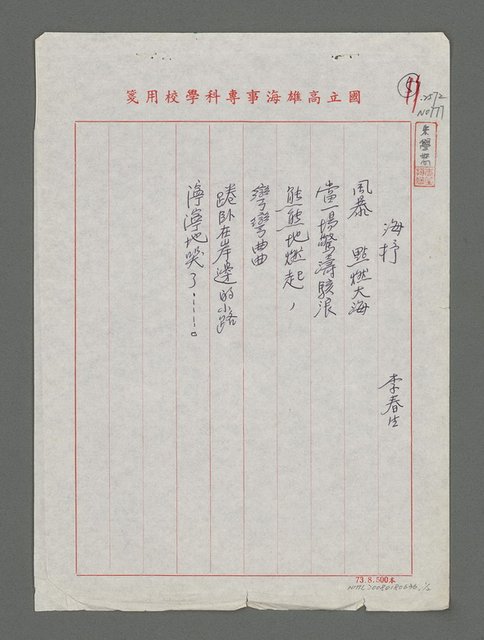 國立高雄海事專科學校用箋
海抒
李春生
風暴 點燃大海
當一場驚濤駭浪
熊熊地燃起，
彎彎曲曲
踡臥在岸邊的小路
濘濘地哭了……。
73.8.500本